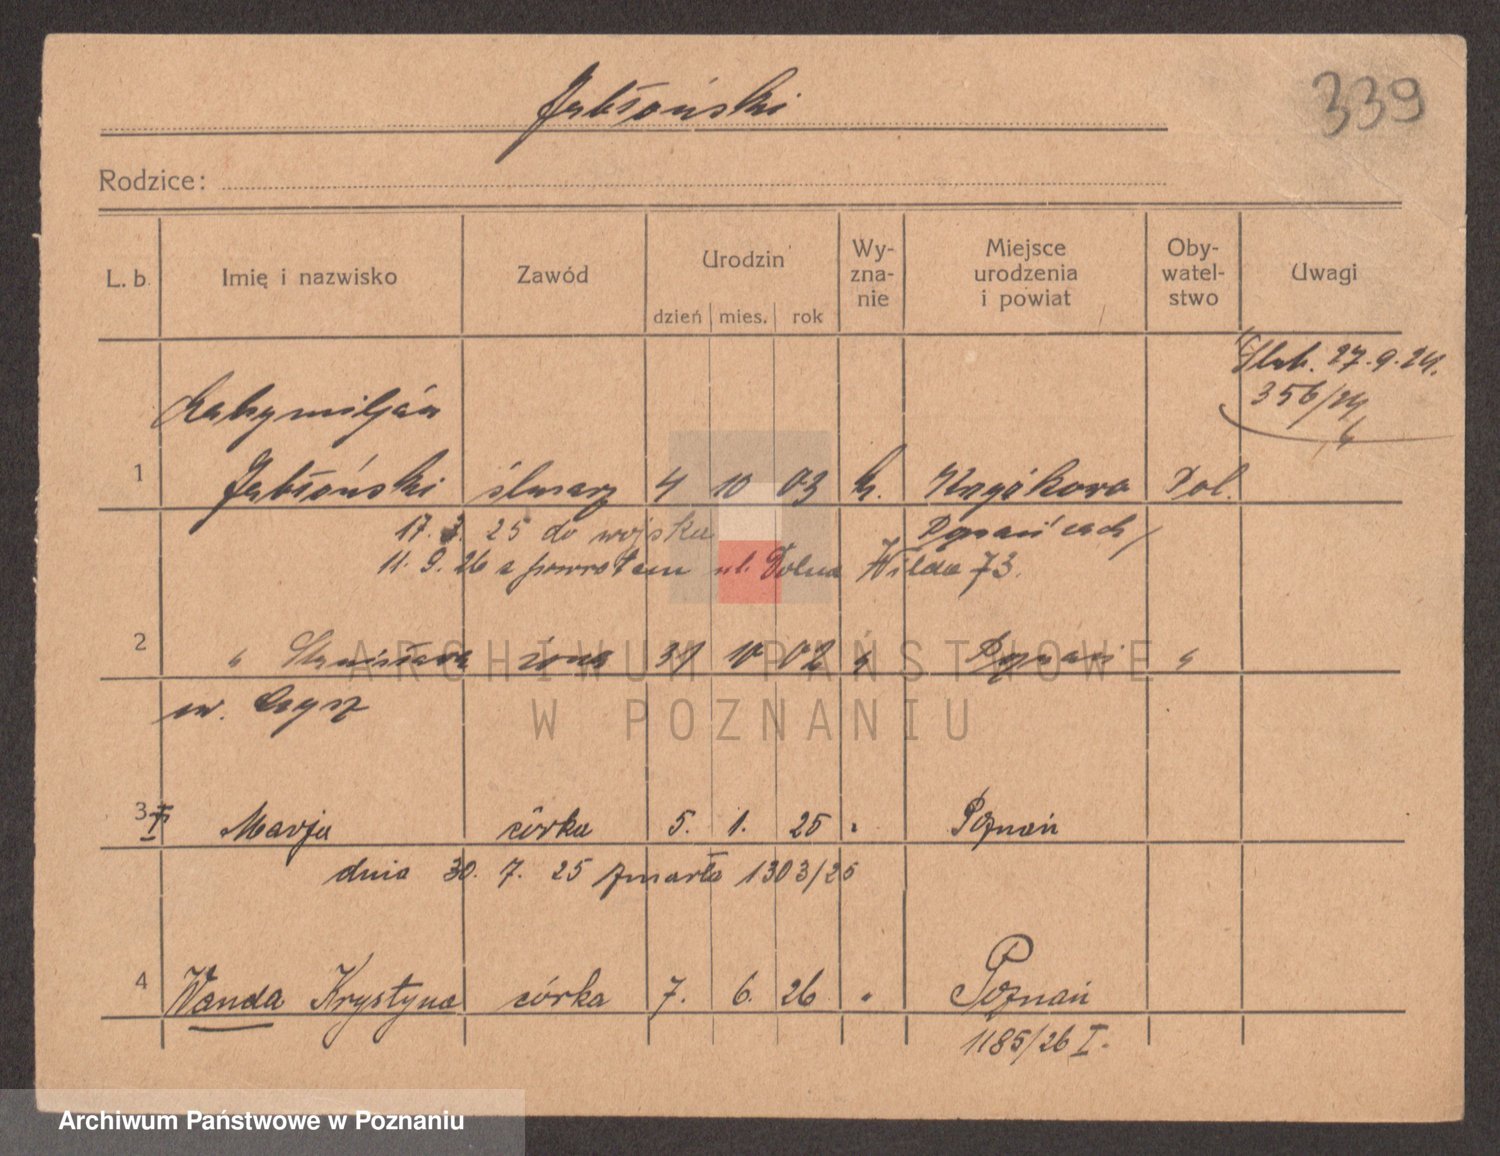 Jabłoński
339
Rodzice:
L. b.
Imię i nazwisko
Zawód
Urodzin
dzień mies. rok
Wy-
zna-
nie
Miejsce
urodzenia
i powiat
Oby-
watel-
stwo
Uwagi
27.9.24.
356/24
1
Jabłoński ślusarz 4 10 03 k. Pol.
17. 25 do wojska
11. 9. 26 z powrotem ul. Dolna Wilda 73.
2
" Stanisława żona 31 10 02 " Poznań "
3
Marja córka 5. 1. 25 " Poznań
dnia 30. 7. 25 zmarła 1303/25
4
Wanda Krystyna córka 7. 6. 26 " Poznań
1185/26 I.
ARCHIWUM PAŃSTWOWE
W POZNANIU
Archiwum Państwowe w Poznaniu